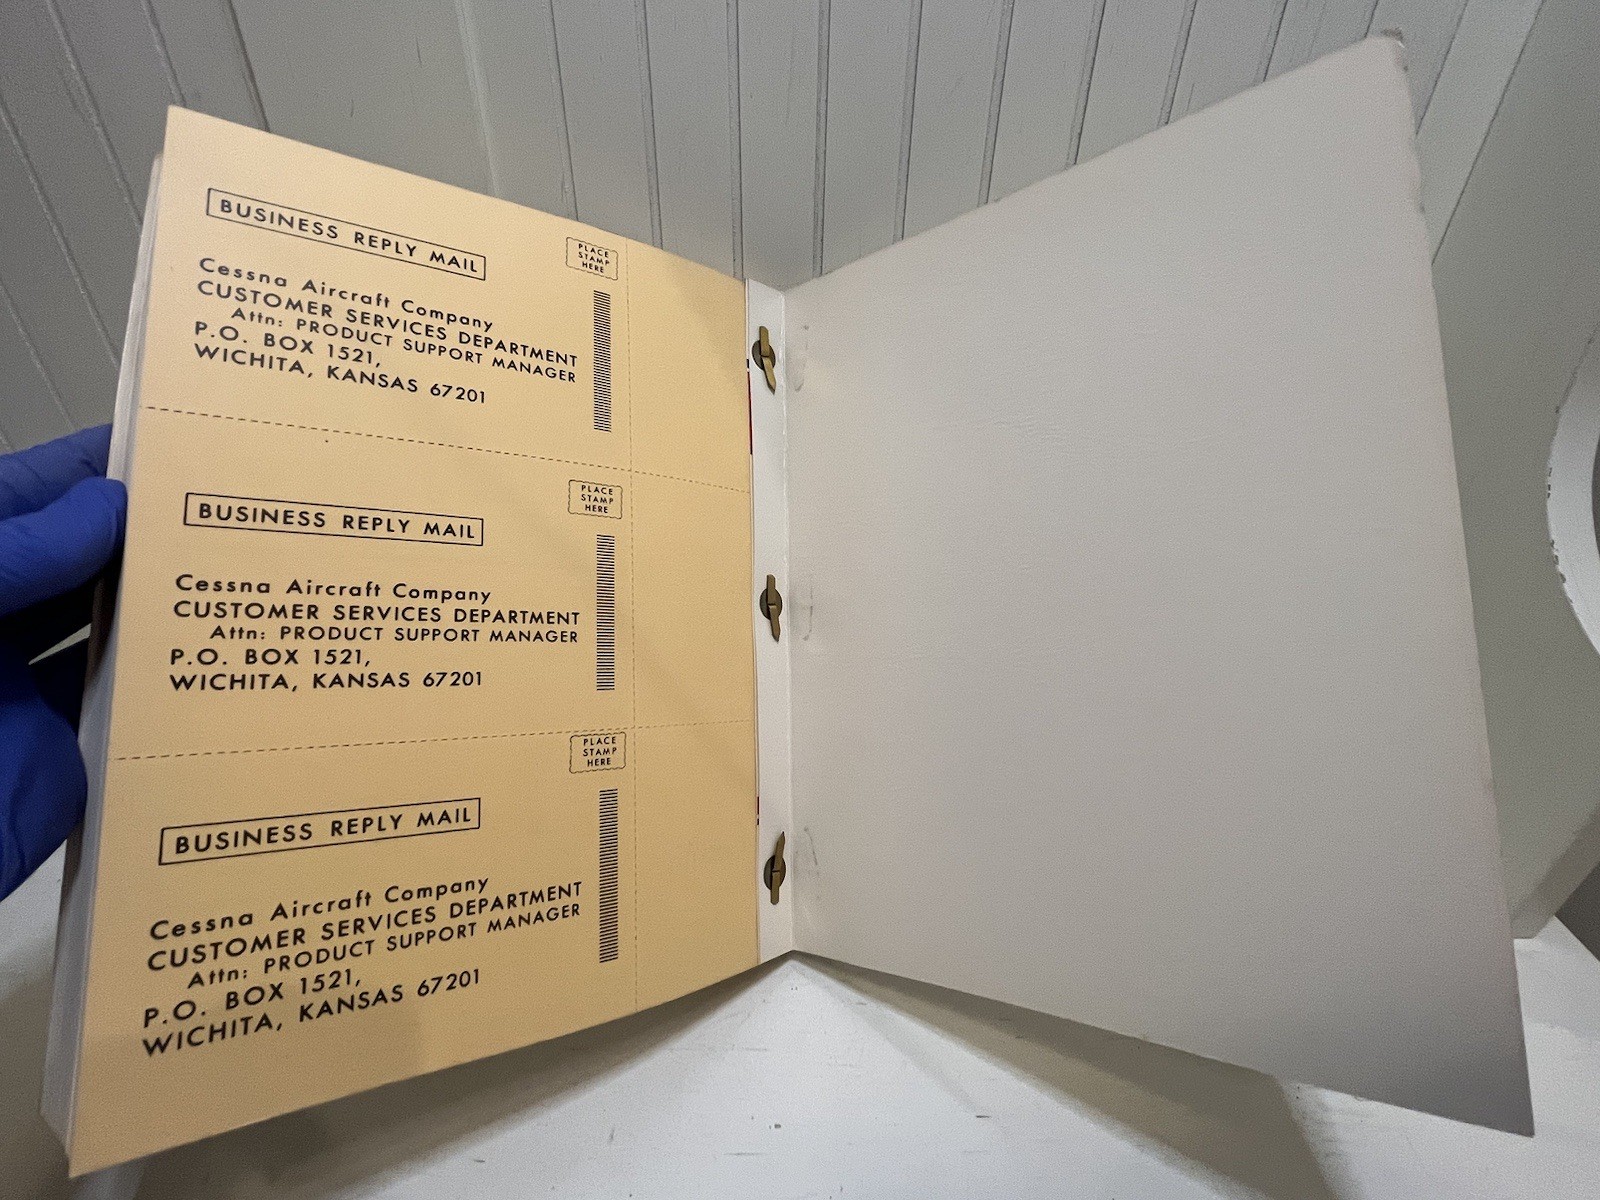 BUSINESS REPLY MAIL
PLACE
STAMP
HERE
Cessna Aircraft Company
CUSTOMER SERVICES DEPARTMENT
Attn: PRODUCT SUPPORT MANAGER
P.O. BOX 1521,
WICHITA, KANSAS 67201
BUSINESS REPLY MAIL
PLACE
STAMP
HERE
Cessna Aircraft Company
CUSTOMER SERVICES DEPARTMENT
Attn: PRODUCT SUPPORT MANAGER
P.O. BOX 1521,
WICHITA, KANSAS 67201
BUSINESS REPLY MAIL
PLACE
STAMP
HERE
Cessna Aircraft Company
CUSTOMER SERVICES DEPARTMENT
Attn: PRODUCT SUPPORT MANAGER
P.O. BOX 1521,
WICHITA, KANSAS 67201